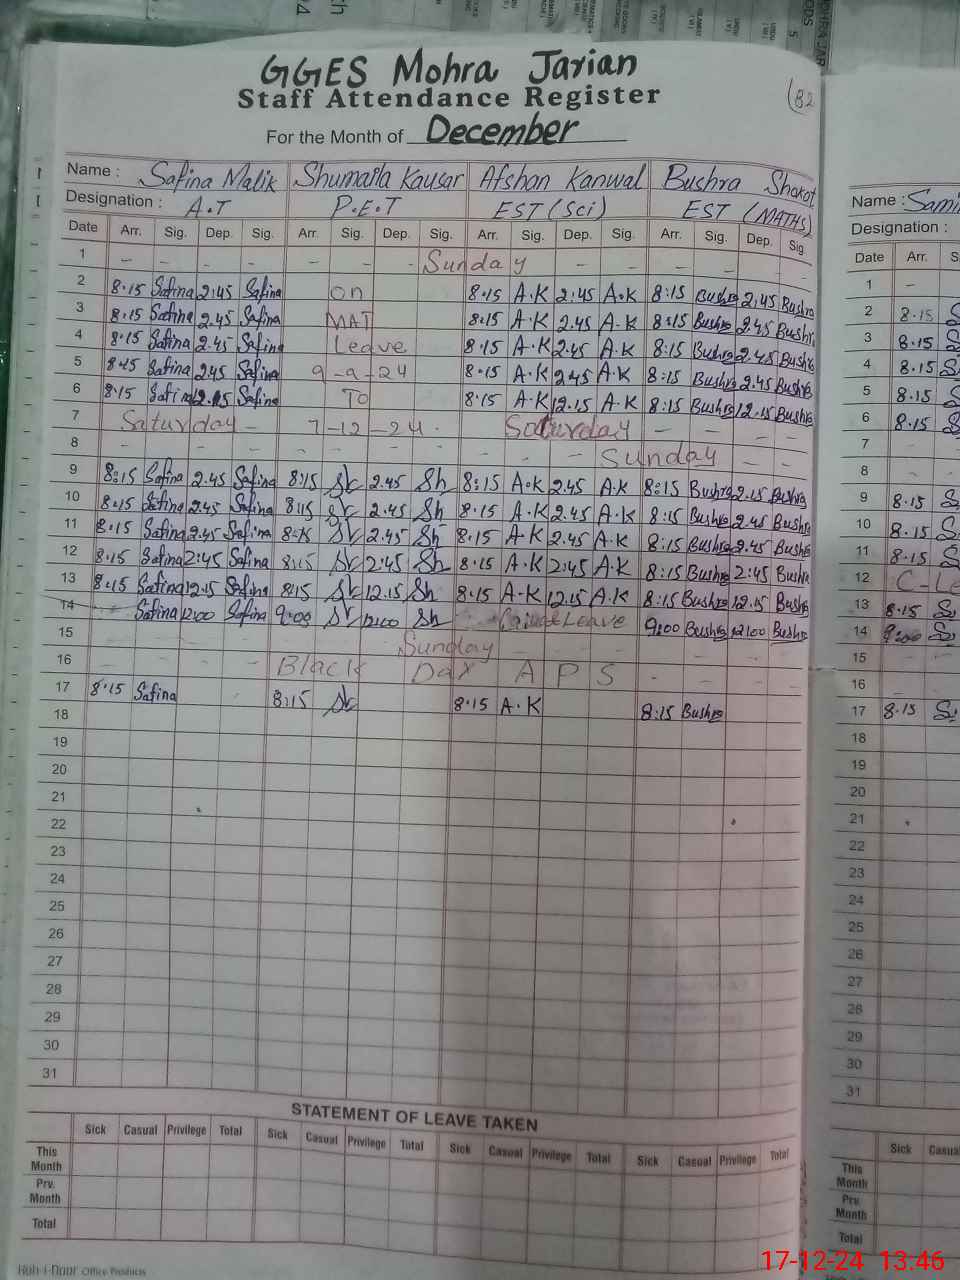 GGES Mohra Jarian
Staff Attendance Register
82
For the Month of December
Name : Safina Malik Shumaila Kausar Afshan Kanwal Bushra Shakot
Designation : A.T P.E.T EST (Sci) EST (MATHS)
Date Arr. Sig. Dep. Sig. Arr. Sig. Dep. Sig. Arr. Sig. Dep. Sig. Arr. Sig. Dep. Sig.
1 - - - - - - - Sunday - - - - -
2 8.15 Safina 2:45 Safina On 8.15 A.K 2:45 A.K 8:15 Bushra 2:45 Bushra
3 8.15 Safina 2.45 Safina MAT 8:15 A.K 2.45 A.K 8:15 Bushra 2.45 Bushra
4 8.15 Safina 2.45 Safina Leave 8.15 A.K 2.45 A.K 8:15 Bushra 2.45 Bushra
5 8.15 Safina 2.45 Safina 9-9-24 8.15 A.K 2.45 A.K 8:15 Bushra 2.45 Bushra
6 8.15 Safina 12.15 Safina To 8.15 A.K 12.15 A.K 8:15 Bushra 12.15 Bushra
7 Saturday - 7-12-24 . Saturday - - - -
8 - - - - - - - Sunday - -
9 8:15 Safina 2.45 Safina 8:15 Sk 2.45 Sh 8:15 A.K 2.45 A.K 8:15 Bushra 2.15 Bushra
10 8.15 Safina 2.45 Safina 8:15 Sk 2.45 Sh 8.15 A.K 2.45 A.K 8:15 Bushra 2.45 Bushra
11 8.15 Safina 2.45 Safina 8:15 Sk 2.45 Sh 8.15 A.K 2.45 A.K 8:15 Bushra 2.45 Bushra
12 8.15 Safina 2:45 Safina 8:15 Sk 2:45 Sh 8.15 A.K 2:45 A.K 8:15 Bushra 2:45 Bushra
13 8.15 Safina 12.15 Safina 8:15 Sk 12.15 Sh 8.15 A.K 12.15 A.K 8:15 Bushra 12.15 Bushra
14 Safina 12:00 Safina 9:00 Sk 12:00 Sh Leave 9:00 Bushra 12:00 Bushra
15 Sunday
16 - - - - Black Day A P S
17 8.15 Safina 8:15 Sk 8.15 A.K 8:15 Bushra
18
19
20
21
22
23
24
25
26
27
28
29
30
31
STATEMENT OF LEAVE TAKEN
Sick Casual Privilege Total Sick Casual Privilege Total Sick Casual Privilege Total Sick Casual Privilege Total
This Month
Prv. Month
Total
Office Products
Name :
Designation :
Date Arr.
1 -
2 8.15
3 8.15
4 8.15
5 8.15
6 8.15
7
8
9 8.15
10 8.15
11 8.15
12
13 8.15
14 9:00
15
16
17 8.15
18
19
20
21
22
23
24
25
26
27
28
29
30
31
Sick
This Month
Prv. Month
Total
17-12-24 13.46